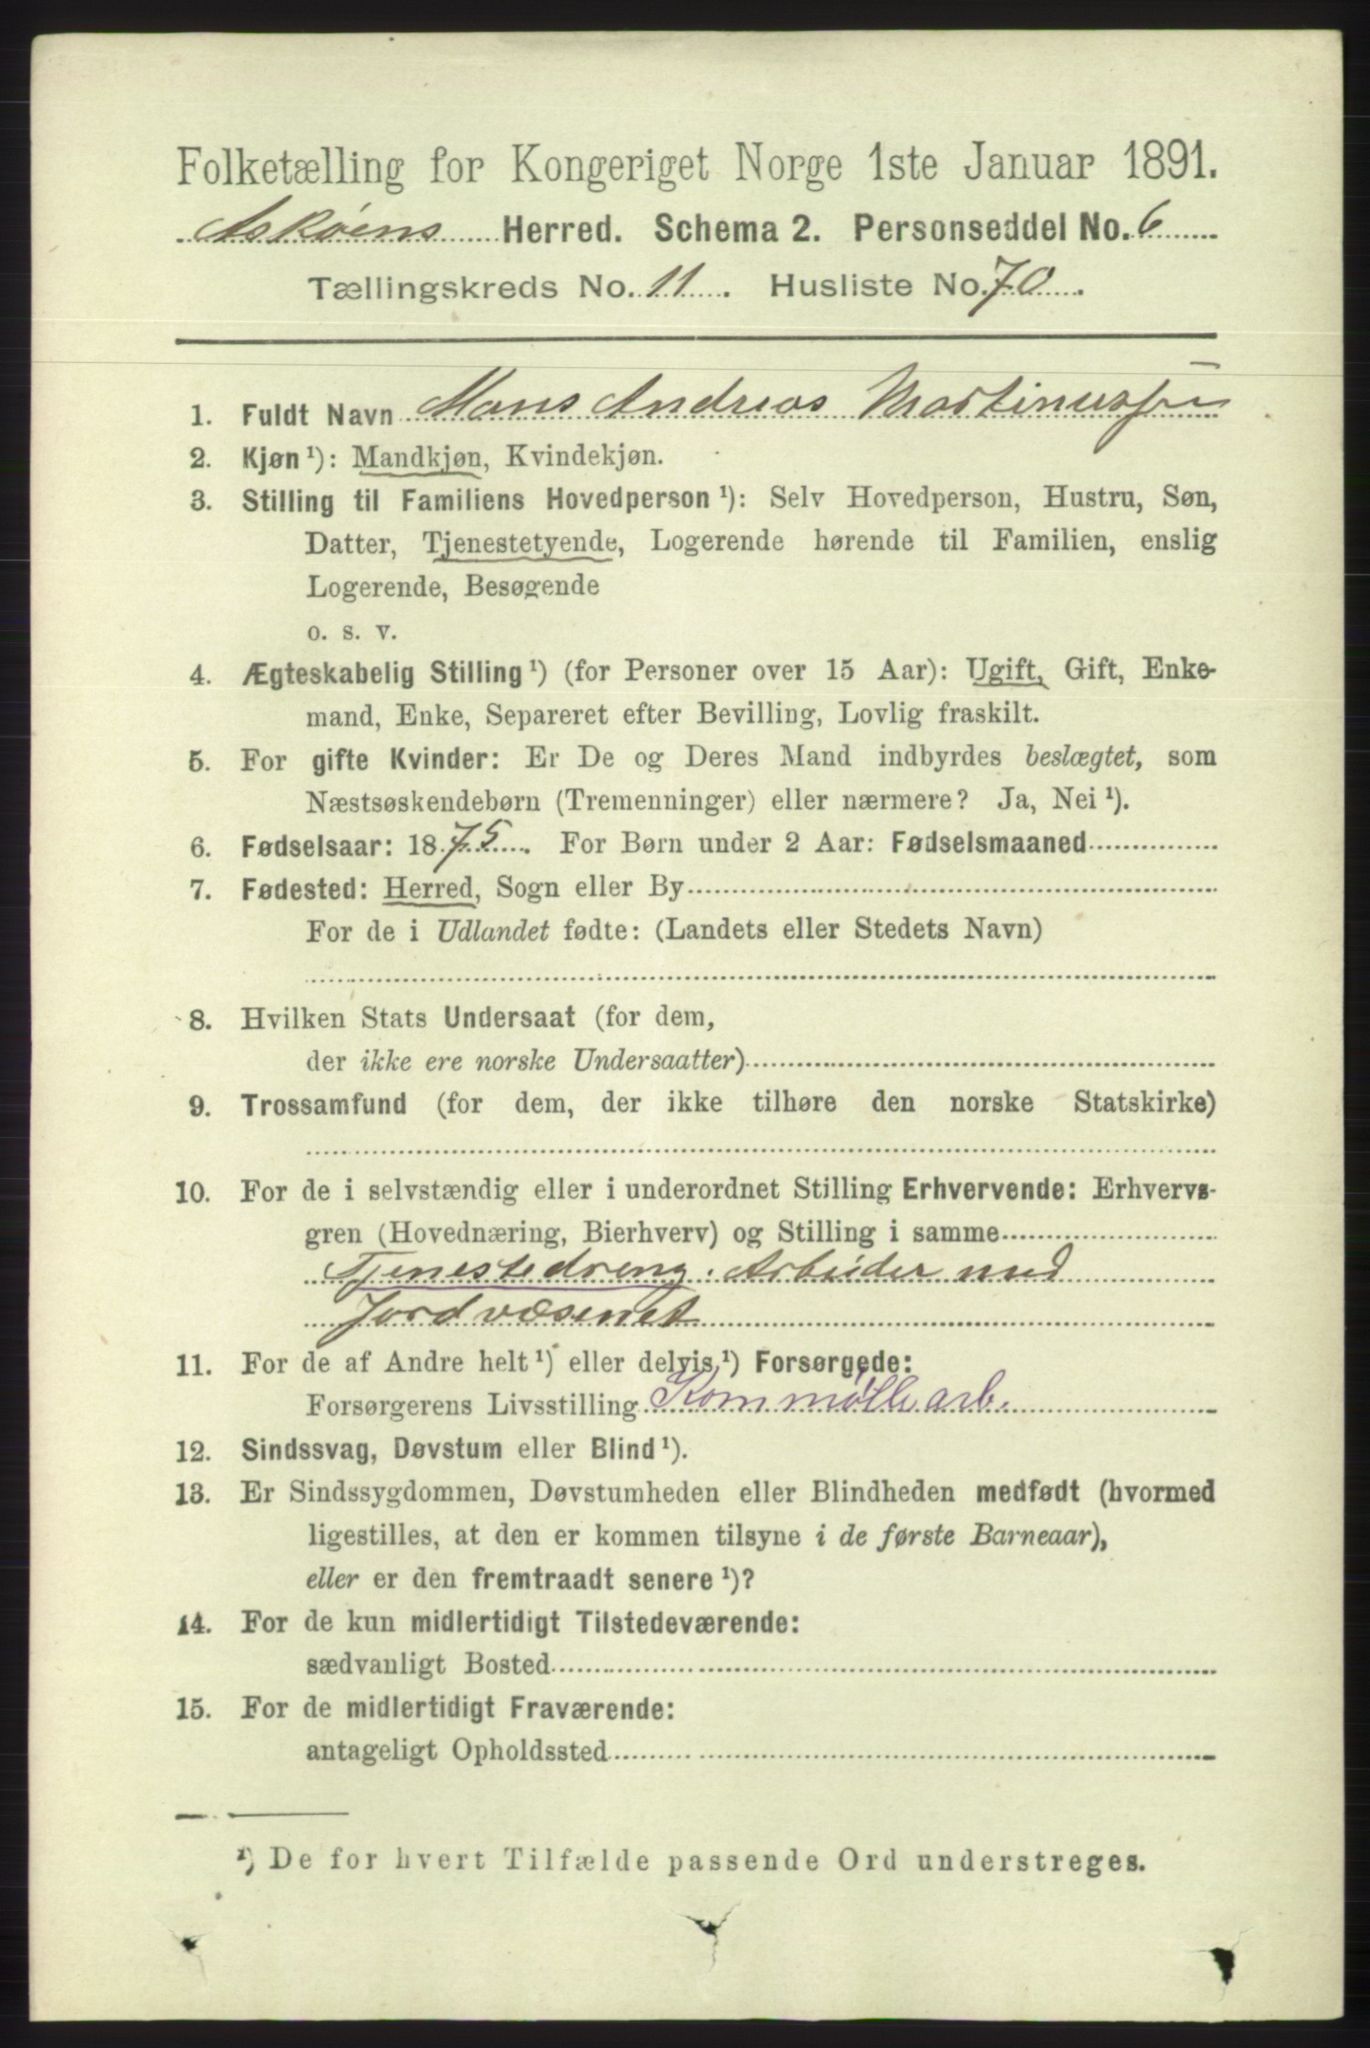 Folketælling for Kongeriget Norge 1ste Januar 1891.
Askøens Herred. Schema 2. Personseddel No. 6
Tællingskreds No. 11. Husliste No. 70.
1. Fuldt Navn Mons Andreas Martinussen
2. Kjøn ¹): Mandkjøn, Kvindekjøn.
3. Stilling til Familiens Hovedperson ¹): Selv Hovedperson, Hustru, Søn,
Datter, Tjenestetyende, Logerende hørende til Familien, enslig
Logerende, Besøgende
o. s. v.
4. Ægteskabelig Stilling ¹) (for Personer over 15 Aar): Ugift, Gift, Enke-
mand, Enke, Separeret efter Bevilling, Lovlig fraskilt.
5. For gifte Kvinder: Er De og Deres Mand indbyrdes beslægtet, som
Næstsøskendebørn (Tremenninger) eller nærmere? Ja, Nei ¹).
6. Fødselsaar: 1875. For Børn under 2 Aar: Fødselsmaaned
7. Fødested: Herred, Sogn eller By
For de i Udlandet fødte: (Landets eller Stedets Navn)
8. Hvilken Stats Undersaat (for dem,
der ikke ere norske Undersaatter)
9. Trossamfund (for dem, der ikke tilhøre den norske Statskirke)
10. For de i selvstændig eller i underordnet Stilling Erhvervende: Erhvervs-
gren (Hovednæring, Bierhverv) og Stilling i samme
Tjenestedreng. Arbeider med
Jordvæsenet
11. For de af Andre helt ¹) eller delvis ¹) Forsørgede:
Forsørgerens Livsstilling Kornmøllearb.
12. Sindssvag, Døvstum eller Blind ¹).
13. Er Sindssygdommen, Døvstumheden eller Blindheden medfødt (hvormed
ligestilles, at den er kommen tilsyne i de første Barneaar),
eller er den fremtraadt senere ¹)?
14. For de kun midlertidigt Tilstedeværende:
sædvanligt Bosted
15. For de midlertidigt Fraværende:
antageligt Opholdssted
¹) De for hvert Tilfælde passende Ord understreges.